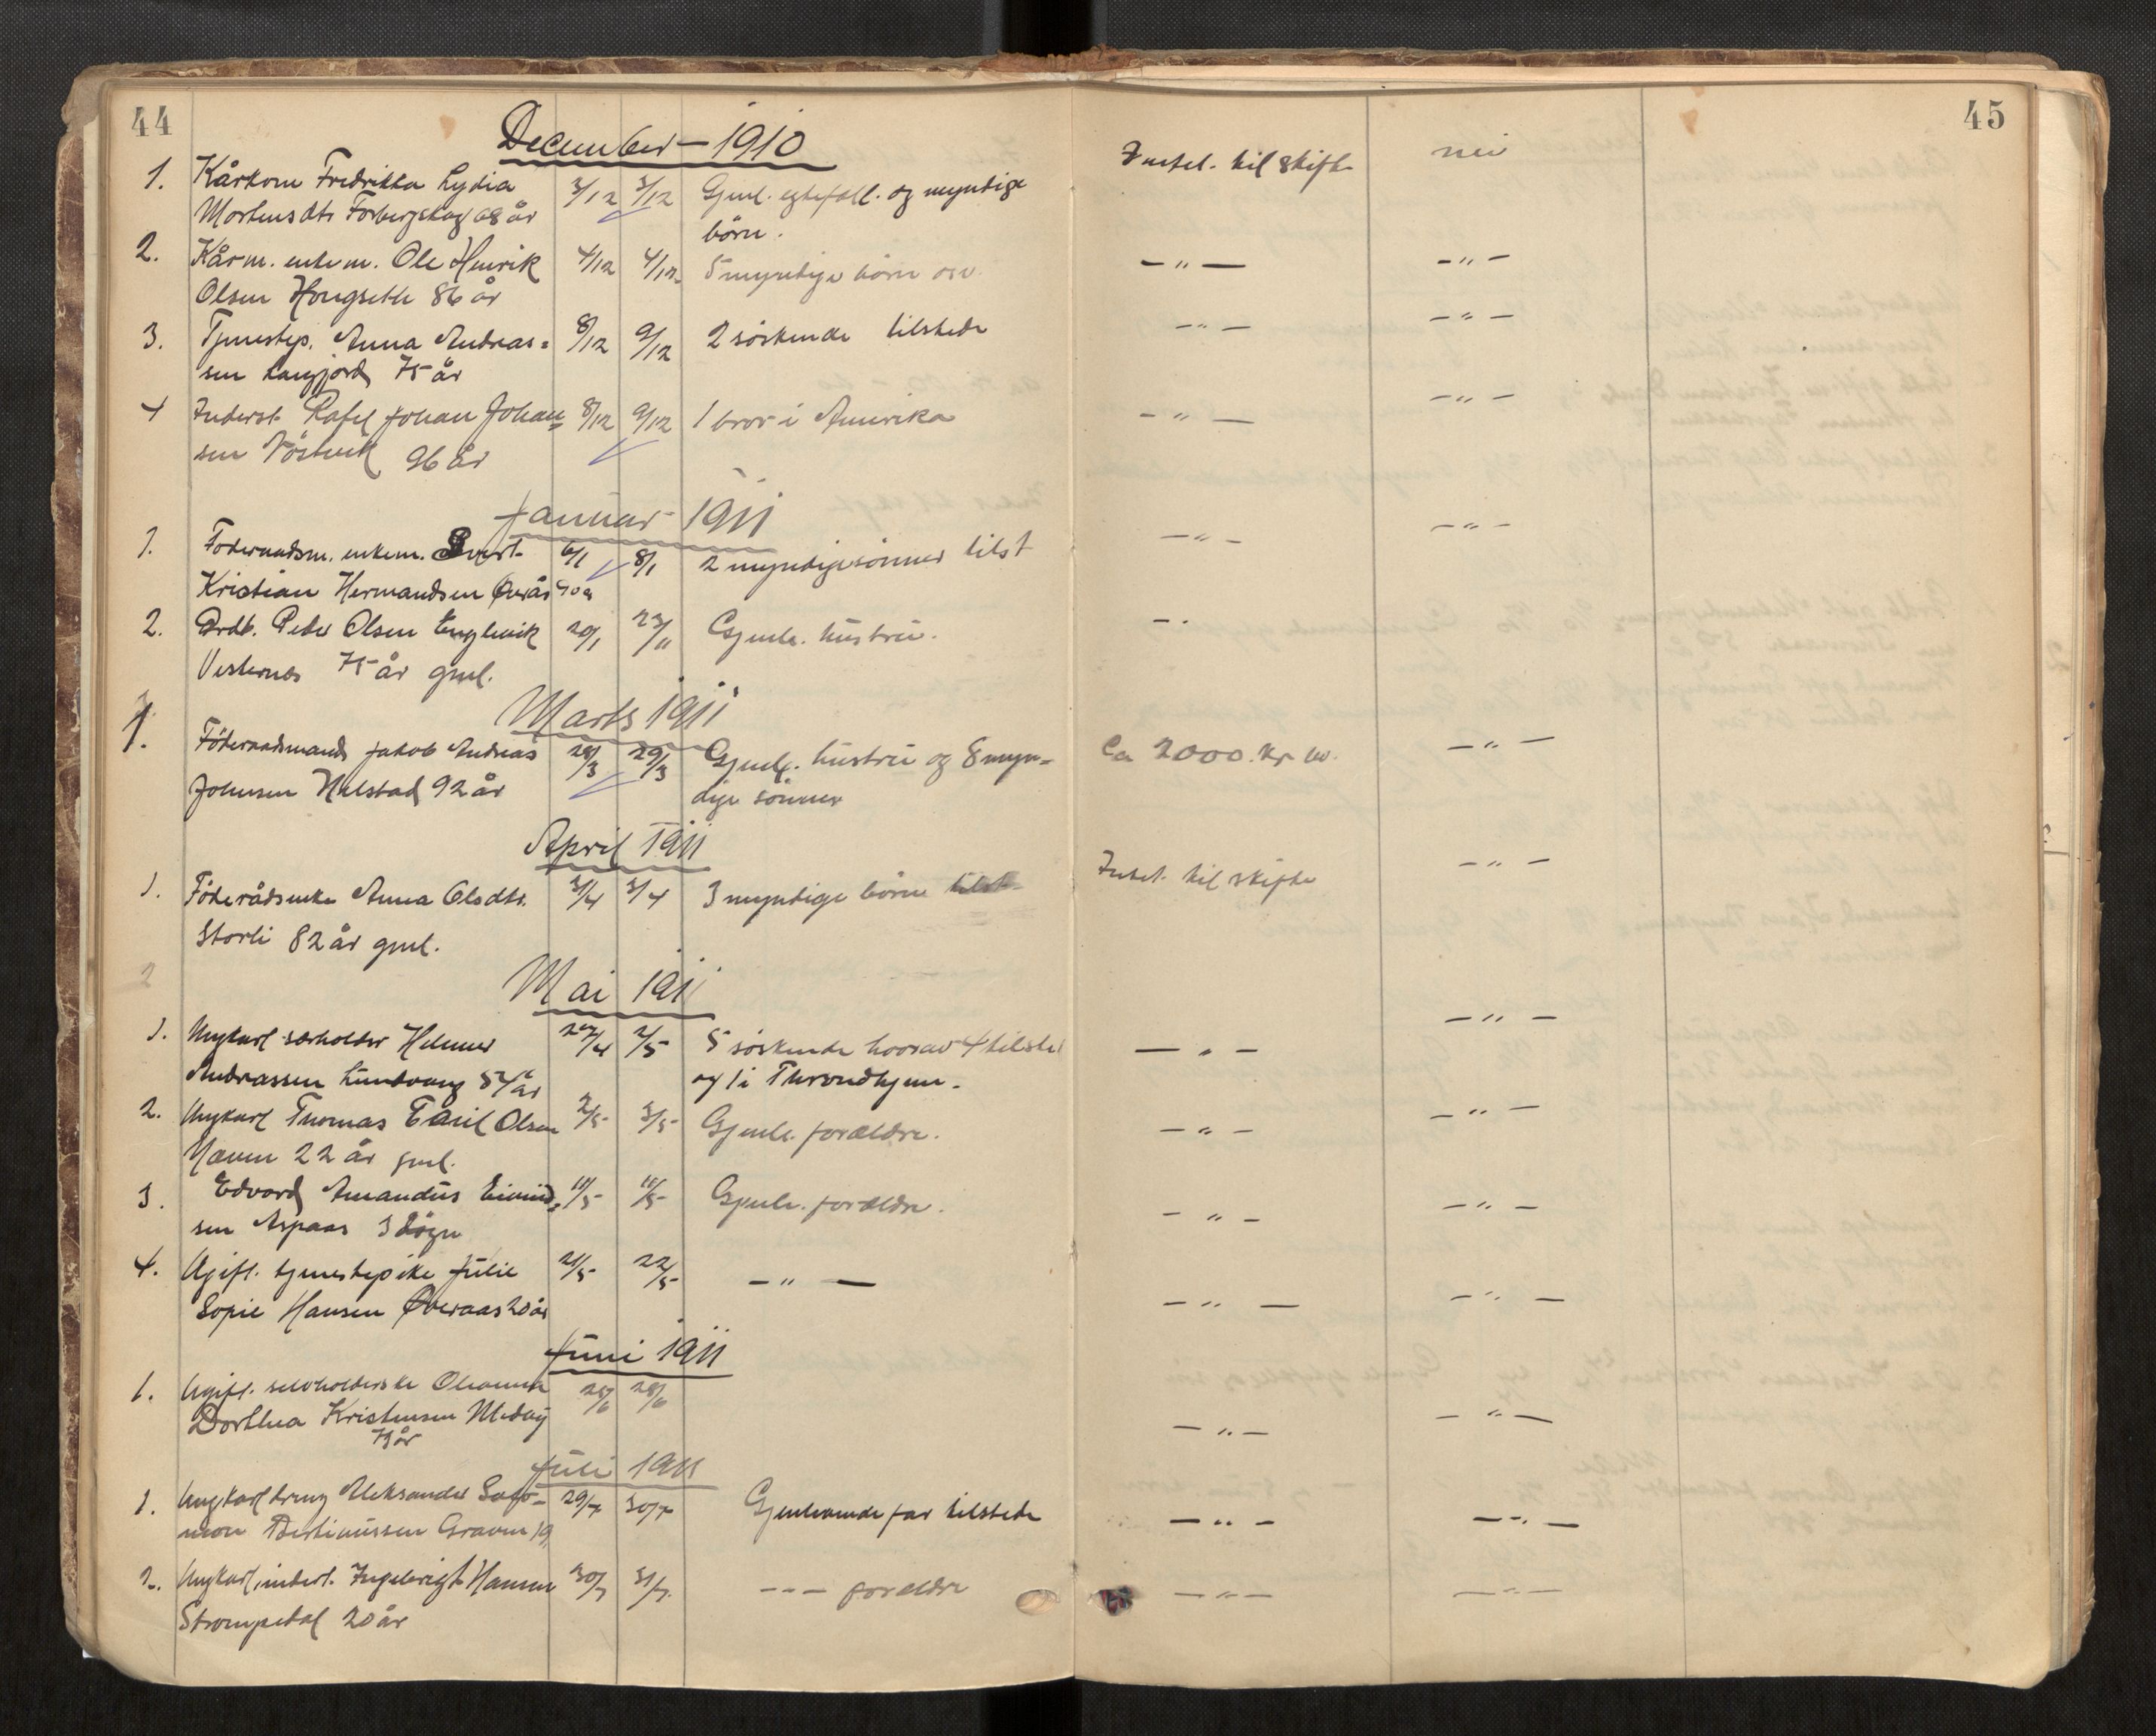 44
December - 1910
1. Kårkone Fredrikka Lydia 3/12 3/12 Gjenl. egtefall. og myndige
Mortensdtr Forbergskog 68 år
børn.
2. Kårm. enkem. Ole Henrik 4/12 4/12 5 myndige børn osv.
Olsen Hongseth 86 år
3. Tjenestep. Anna Andreas= 8/12 9/12 2 søskende tilstede
sen Langjord 75 år
4 Inderst. Rafel Johan Johan= 8/12 9/12 1 bror i Amerika
sen 96 år
Januar - 1911
1. Føderaadsm. enkem. 6/1 8/1 2 myndige sønner tilst
Kristian Hermandsen Øverås
2. Peder Olsen Englevik 20/1 23/11 Gjenle. hustru.
Vesternes 75 år gml.
Marts 1911
1. Føderaadsmand Jakob Andreas 28/3 29/3 Gjenl. hustru og 8 myn=
Johnsen Halstad 92 år dige sønner
April 1911
1. Føderådsenke Anna Olsdtr. 3/4 3/4 3 myndige børn tilst
Storli 82 år gml.
2
Mai 1911
1. Ungkarl selvholder Helmer 2/5 5 søskende hvorav 4 tilsted
Andreassen Lundvang 54 år og 1 i Throndhjem.
2. Ungkarl Thomas Emil Olsen 2/5 3/5 Gjenle. forældre.
22 år gml.
3. Edvard Amandus Eivind= 11/5 11/5 Gjenle. forældre.
sen Aspaas 3 døgn
4. Ugift. tjenestepike Julie 21/5 22/5 - " -
Sopie Hansen Øveraas 20 år
Juni 1911
1. Ugift. selvholderske Oleanna 28/6
Dorthea Kristensen
år
Juli 1911
1. Ungkarl dreng Aleksander Salo- 29/7 30/7 Gjenlevende far tilstede
mon Bertinussen Graven 19
2. Ungkarl, inderst. Ingebrigt Hansen 30/7 31/7 - - - forældre
Strompdal 20 år
45
Intet. til skifte nei
- " - - " -
- " - - " -
- " - - " -
- " - - " -
- "
Ca 2000. kr - " -
Intet. til skifte - " -
- " - - " -
- " - - " -
- " - - " -
- " - - " -
- " - - " -
- " - - " -
- " - - " -